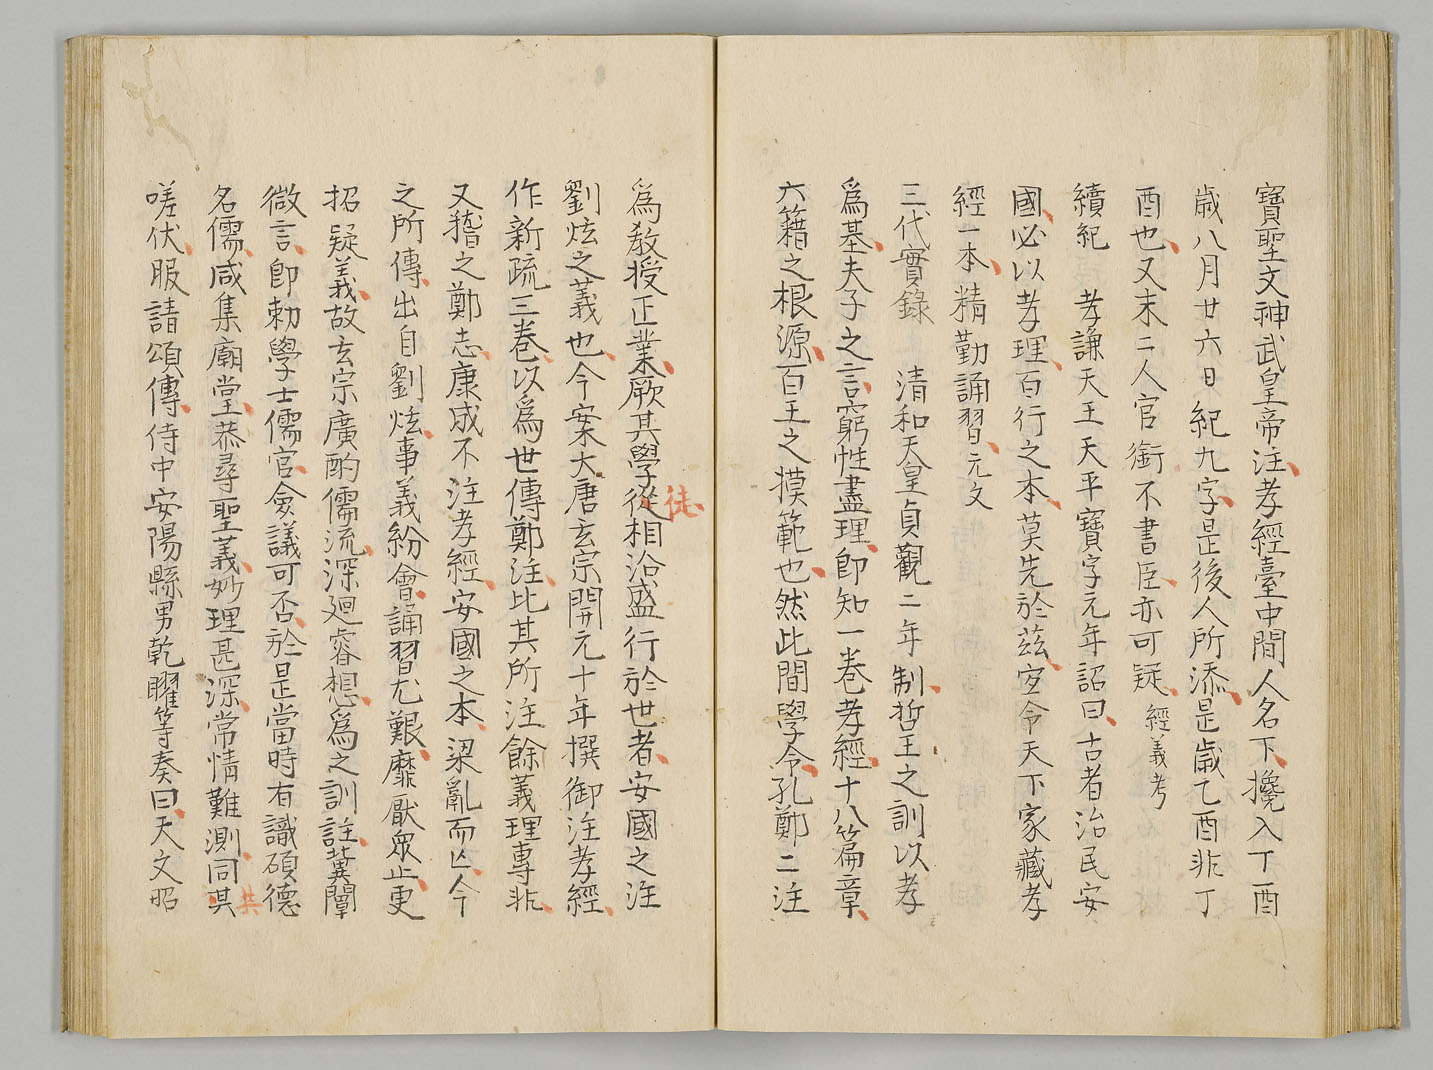 寶聖文神武皇帝注孝經臺中間人名下攙入丁酉
歲八月廿六日紀九字是後人所添是歲乙酉非丁
酉也又末二人官銜不書臣亦可疑 經義考
續紀 孝謙天王天平寶字元年詔曰古者治民安
國必以孝理百行之本莫先於茲宜令天下家藏孝
經一本精勤誦習元文
三代實錄 清和天皇貞觀二年制哲王之訓以孝
爲基夫子之言窮性盡理即知一卷孝經十八篇章
六籍之根源百王之摸範也然此間學令孔鄭二注
爲教授正業厥其學從相沿盛行於世者安國之注
徒
劉炫之義也今案大唐玄宗開元十年撰御注孝經
作新疏三卷以爲世傳鄭注比其所注餘義理專非
又稽之鄭志康成不注孝經安國之本梁亂而亡今
之所傳出自劉炫事義紛會誦習尤艱靡厭衆止更
招疑義故玄宗廣酌儒流深廻睿想爲之訓註冀闡
微言即勅學士儒官僉議可否於是當時有識碩德
名儒咸集廟堂恭尋聖義妙理甚深常情難測同其
共
嗟伏服請頌傳侍中安陽縣男乾曜等奏曰天文昭